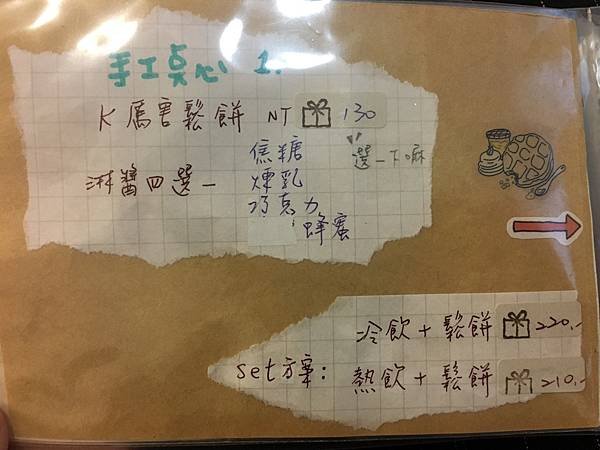 手工點心 1.
K 厲害鬆餅 NT 130
選一下嘛
淋醬四選一
焦糖
煉乳
巧克力
蜂蜜
冷飲+鬆餅 220.-
set方案: 熱飲+鬆餅 210.-